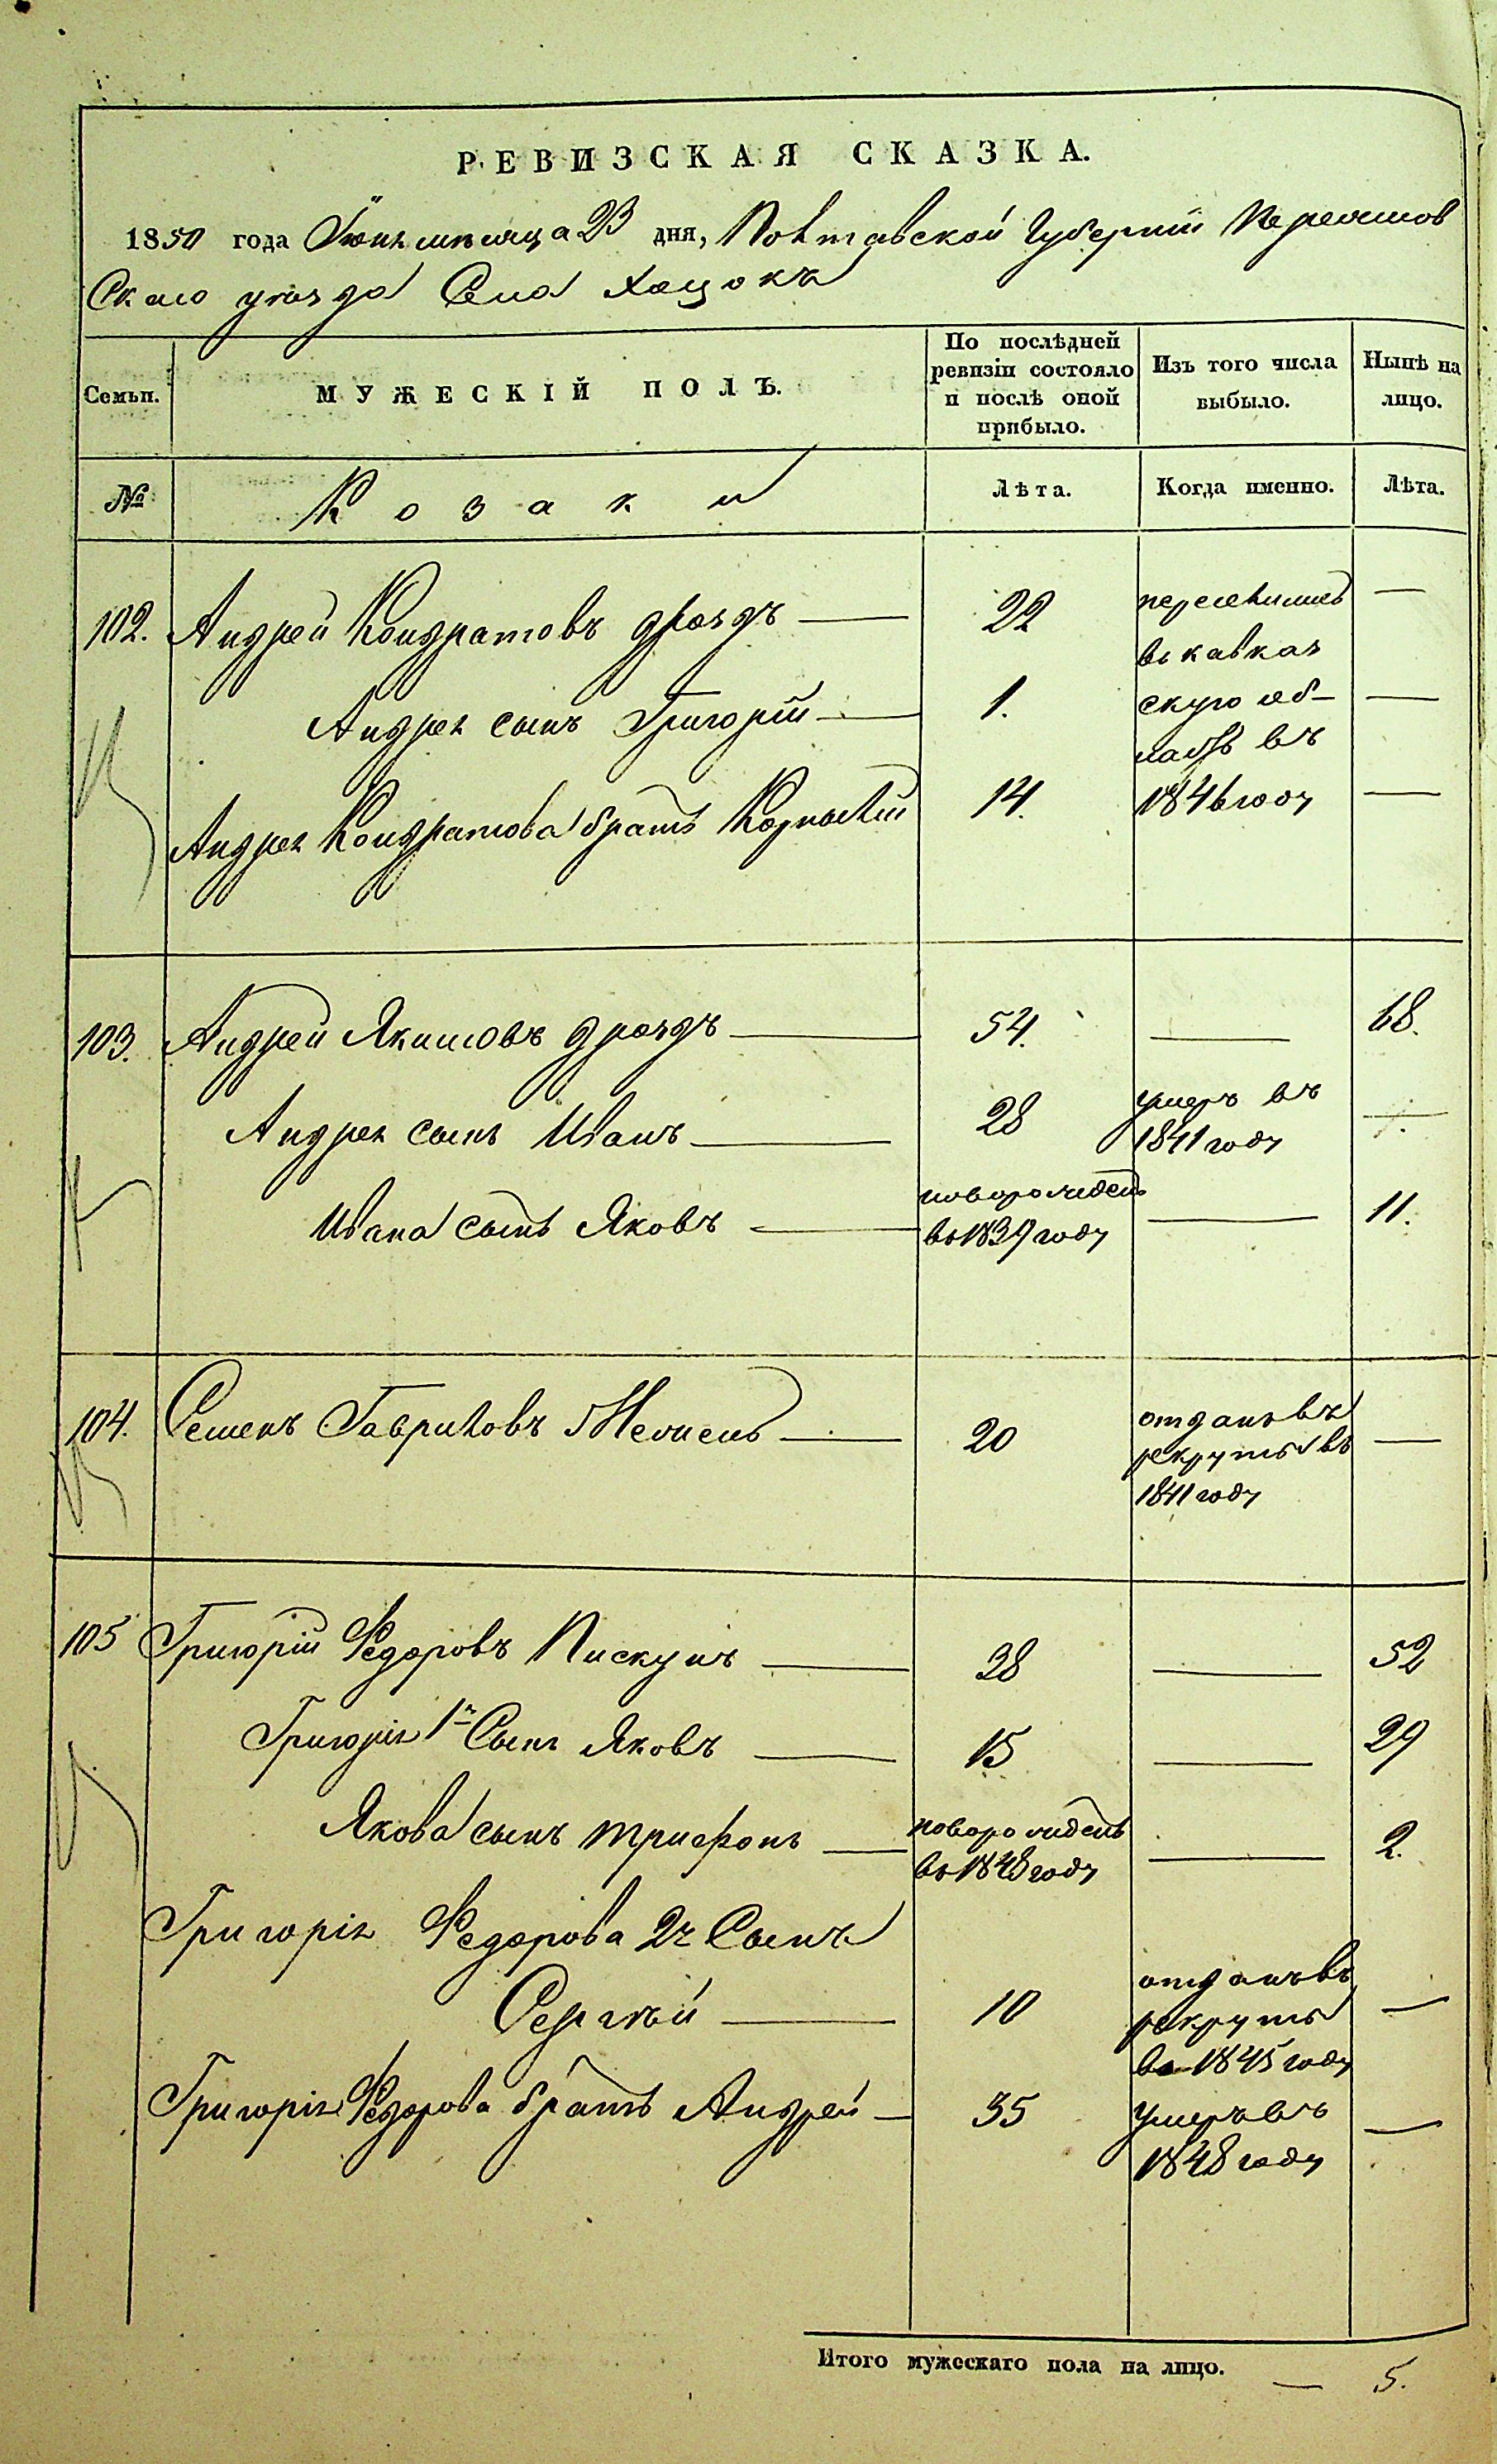 РЕВИЗСКАЯ СКАЗКА.
1850 года Іюнь мѣсяца 23 дня, Полтавской Губерніи Переяслов
Скаго уѣзда Села Хоцокъ
Семьи.
МУЖЕСКІЙ ПОЛЪ.
По послѣдней ревизіи состояло и послѣ оной прибыло.
Изъ того числа выбыло.
Нынѣ на лицо.
№
Козаки
Лѣта.
Когда именно.
Лѣта.
102. Андрей Кондратовъ Дроздъ — 22 переселились —
въ кавказ
Андрея сынъ Григорій — 1. скую об- —
ласть въ
Андрея Кондратова братъ Корнилій 14. 1846 году —
103. Андрей Якимовъ Дроздъ — 54. — 68.
Андрея сынъ Иванъ — 28 умеръ въ 1841 году —
Ивана сынъ Яковъ — новорожденъ въ 1839 году — 11.
104. Семенъ Гавриловъ — 20 отданъ въ рекруты въ 1841 году —
105 Григорій Федоровъ Пискунъ — 38 — 52
Григорія 1й Сынъ Яковъ — 15 — 29
Якова сынъ Трифонъ — новорожденъ въ 1848 году — 2.
Григорія Федорова 2й Сынъ
Сергѣй — 10 отданъ въ рекруты въ 1845 году —
Григорія Федорова братъ Андрей — 35 умеръ въ 1848 году —
Итого мужескаго пола на лицо. — 5.